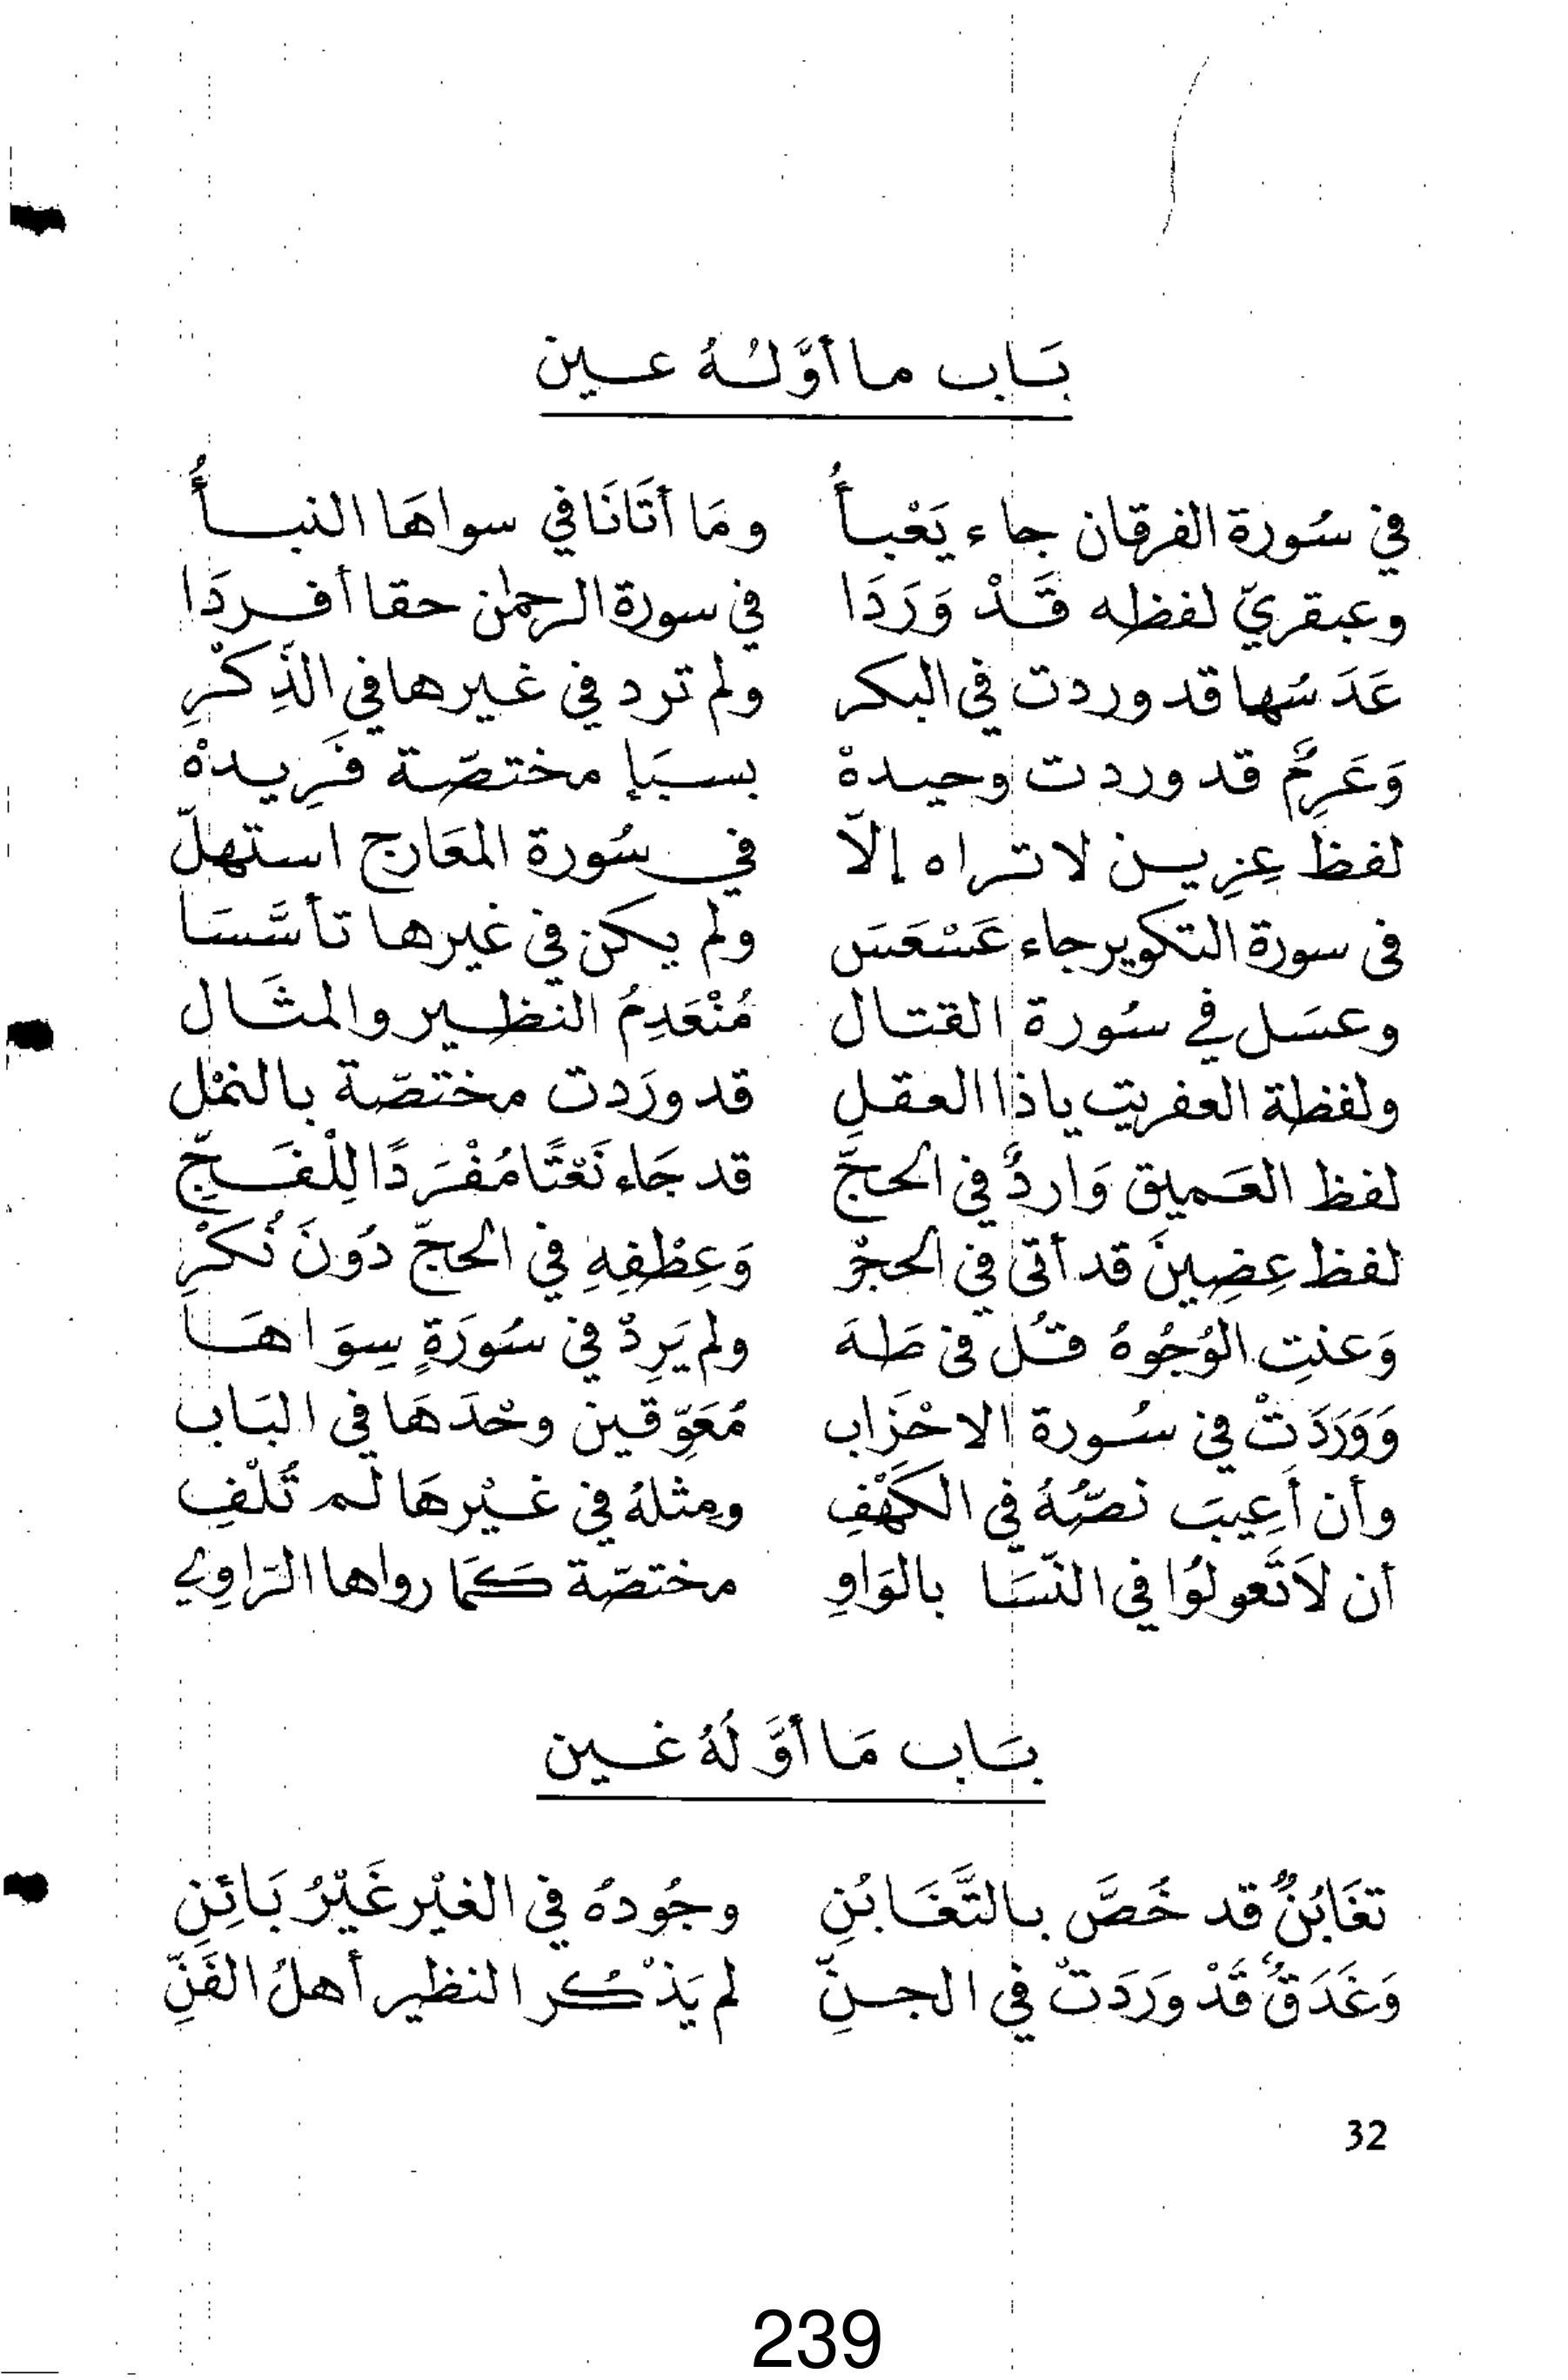 بَاب ما أوَّلُهُ عين
في سُورة الفرقان جاء يَعْبأُ ومَا أتَانَا في سواهَا النبأُ
وعبقريّ لفظه قَدْ وَرَدَا في سورة الرحمٰن حقا أفردَا
عَدَسُها قد وردت في البكر ولم ترد في غيرها في الذِّكْرِ
وَعَرِمٌ قد وردت وحيدهْ بسبَإ مختصّة فَرِيدهْ
لفظ عِزِين لا تراه إلاّ في سُورة المعَارج استهلّ
في سورة التكوير جاء عَسْعَسَ ولم يكن في غيرها تأسَّسَا
وعسَل في سُورة القتال مُنْعَدِمُ النظير والمثَال
ولفظة العفريت ياذا العقلِ قد ورَدت مختصّة بالنمْل
لفظ العَميق وَاردٌ في الحجّ قد جَاء نَعْتًا مُفْرَدًا لِلْفَجِّ
لفظ عِضِينَ قد أتى في الحجْر وَعِطْفِهِ في الحجّ دُونَ نُكْرِ
وَعنتِ الوُجُوهُ قُل في طَهَ ولم يَرِدْ في سُورَةٍ سِوَاهَا
وَوَرَدَتْ في سُورة الاحْزَاب مُعَوِّقين وحْدَهَا في البَاب
وأن أَعِيبَ نصُّهُ في الكَهْفِ ومثلهُ في غيْرهَا لم تُلْفِ
أن لاَ تَعولوُا في النّسَا بالوَاوِ مختصّة كَمَا رواها الرَاوِي
بَاب مَا أوَّلَهُ غين
تغَابُنٌ قد خُصَّ بالتَّغَابُنِ وجُودهُ في الغيْر غَيْرُ بَائِنِ
وَغَدَقٌ قَدْ وَرَدَتْ في الجنِّ لم يَذْكُر النظير أهلُ الفَنِّ
32
239